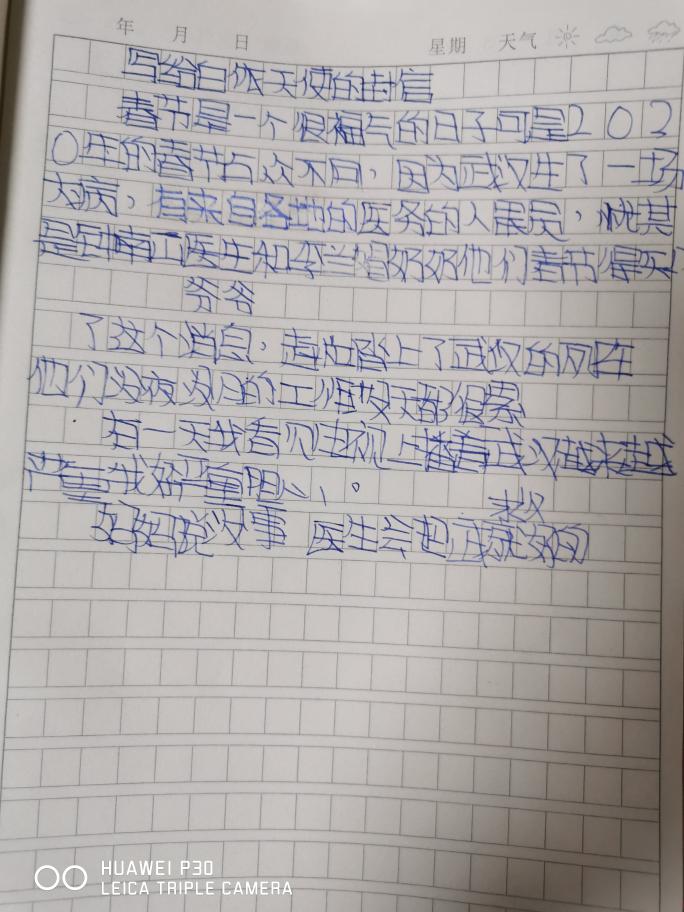 年 月 日 星期 天气
写给白依天使的封信
春节是一个很福气的日子可是202
0年的春节与众不同，因为武汉生了一场
大病，有来自各地的医务的人员，尤其
是钟南山医生和李兰娟奶奶他们春节得知
爷爷
了这个消息，赶忙踏上了武汉的列车
他们没夜没日的工作每天都很累
有一天我看见电视上播着武汉越来越
严重我好严重担心，。
求救
妈妈说没事 医生会把武汉救好的
HUAWEI P30
LEICA TRIPLE CAMERA